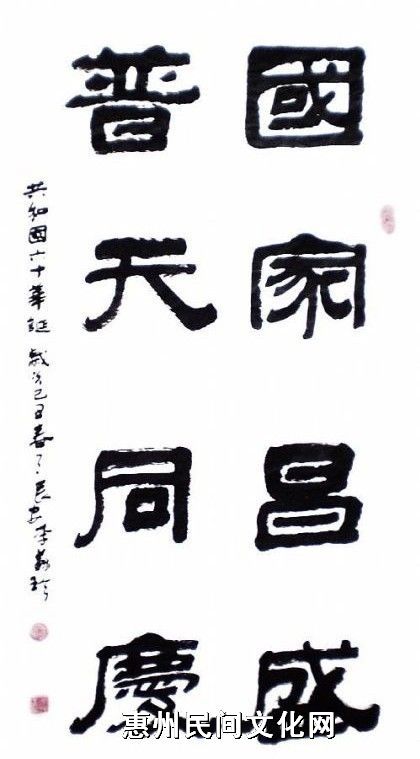 國家昌盛
普天同慶
共和國六十華誕歲次己丑春
惠州民间文化网